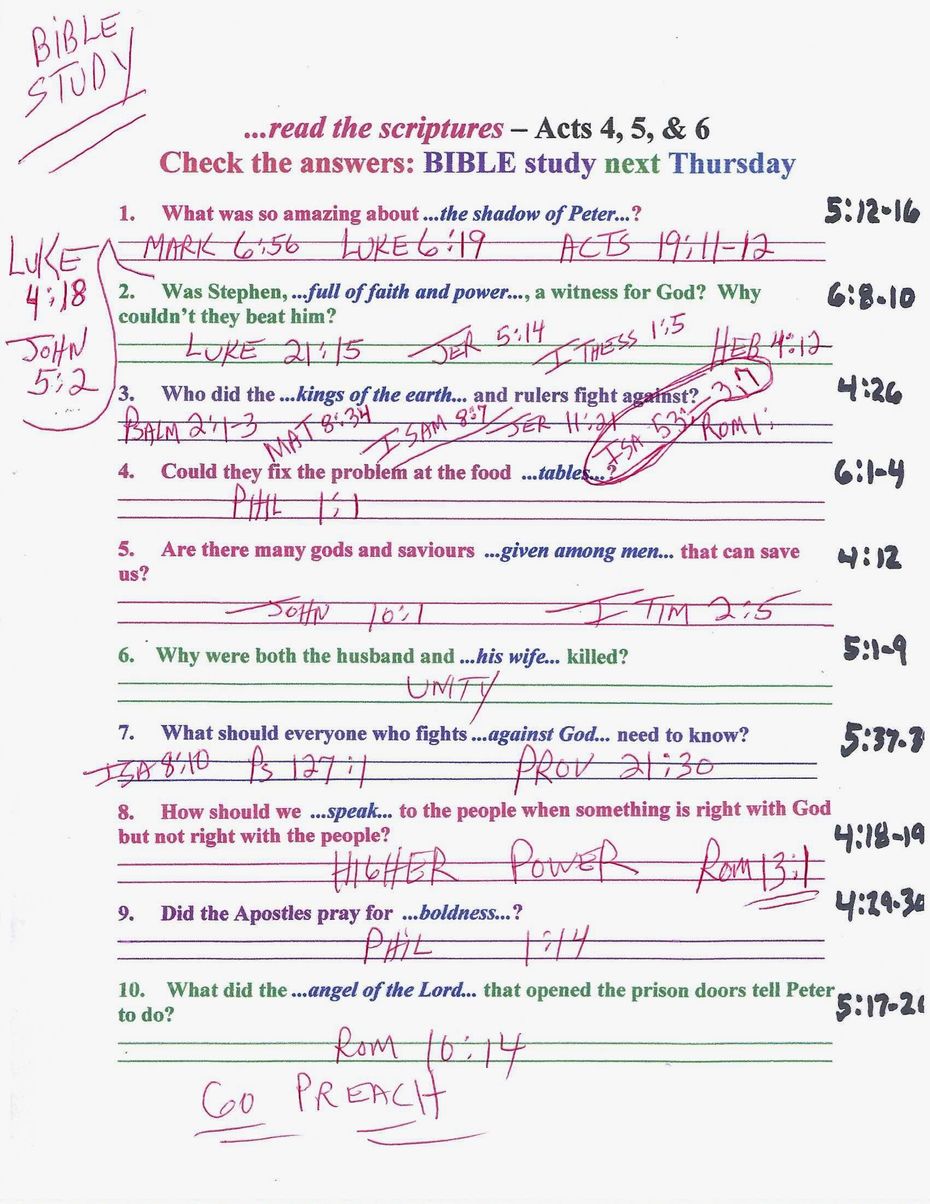 BiBLE
STUDY
...read the scriptures – Acts 4, 5, & 6
Check the answers: BIBLE study next Thursday
1. What was so amazing about ...the shadow of Peter...? 5:12-16
MARK 6:56 LUKE 6:19 ACTS 19:11-12
LUKE
4:18
JOHN
5:2
2. Was Stephen, ...full of faith and power..., a witness for God? Why 6:8-10
couldn't they beat him?
LUKE 21:15 JER 5:14 I THESS 1:5 HEB 4:12
3. Who did the ...kings of the earth... and rulers fight against? 4:26
PSALM 2:1-3 MAT 8:34 I SAM 8:7 JER 11:21 ISA 53:-3,7 ROM 1:
4. Could they fix the problem at the food ...tables...? 6:1-4
PHIL 1:1
5. Are there many gods and saviours ...given among men... that can save 4:12
us?
JOHN 10:1 I TIM 2:5
6. Why were both the husband and ...his wife... killed? 5:1-9
UNITY
7. What should everyone who fights ...against God... need to know? 5:37-3
ISA 8:10 Ps 127:1 PROV 21:30
8. How should we ...speak... to the people when something is right with God
but not right with the people? 4:18-19
HIGHER POWER ROM 13:1
9. Did the Apostles pray for ...boldness...? 4:29-30
PHIL 1:14
10. What did the ...angel of the Lord... that opened the prison doors tell Peter 5:17-20
to do?
ROM 10:14
GO PREACH